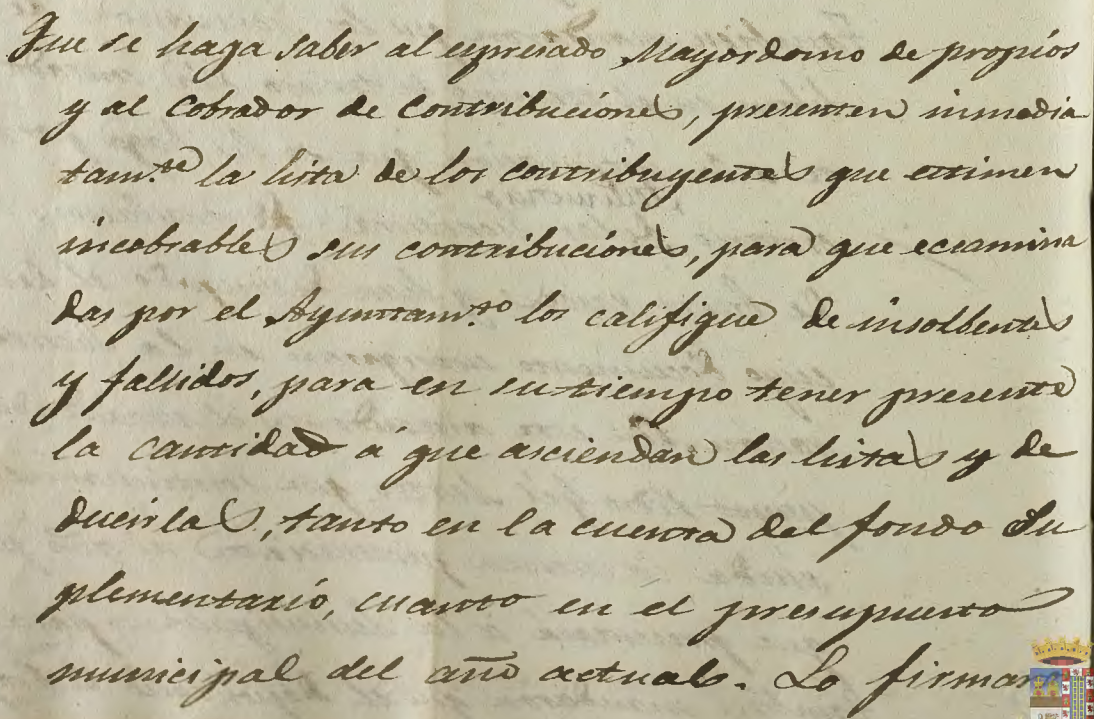 Que se haga saber al espresado Mayordomo de propios
y al Cobrador de Contribuciones, presenten inmedia
tam.te la lista de los contribuyentes que estimen
incobrables sus contribuciones, para que ecsamina
das por el Ayuntam.to los califique de insolbentes
y fallidos, para en su tiempo tener presente
la cantidad á que asciendan las listas y de
ducirlas, tanto en la cuenta del fondo Su
plementario, cuanto en el presupuesto
municipal del año actual. Lo firman